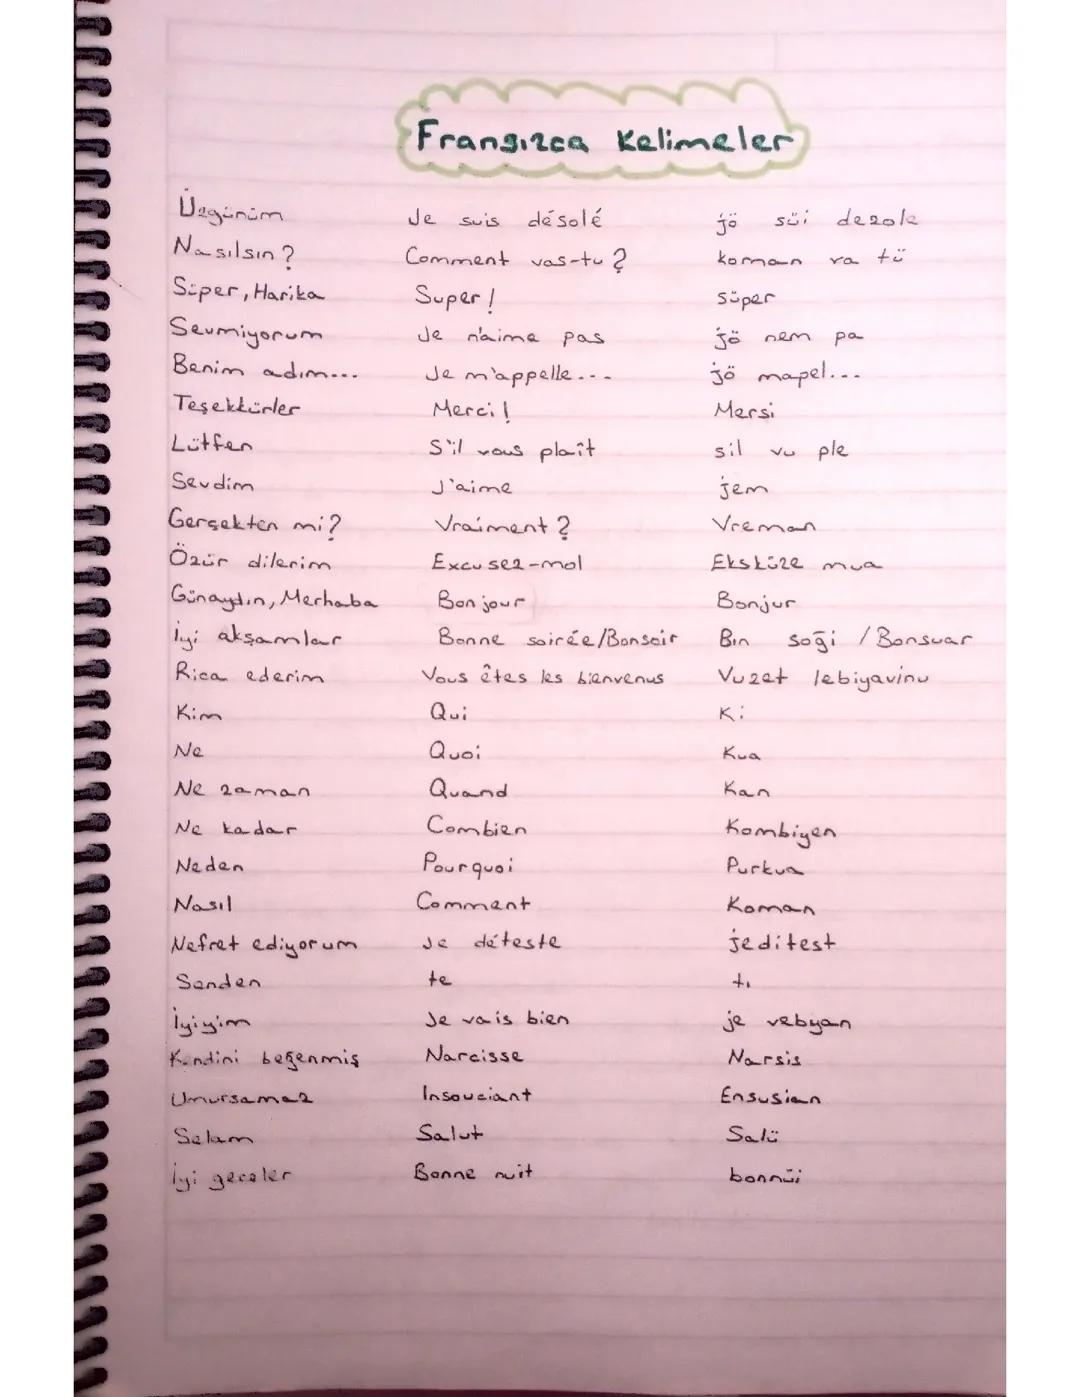 Fransızca Kelimeler
Üzgünüm Je suis désolé jö süi dezole
Nasılsın? Comment vas-tu? koman va tü
Süper, Harika Super! süper
Sevmiyorum Je n'aime pas jö nem pa
Benim adım... Je m'appelle... jö mapel...
Teşekkürler Merci! Mersi
Lütfen S'il vous plaît sil vu ple
Sevdim J'aime jem
Gerçekten mi? Vraiment? Vreman
Özür dilerim Excusez-moi Eksküze mua
Günaydın, Merhaba Bonjour Bonjur
İyi akşamlar Bonne soirée/Bonsoir Bın soği / Bonsuar
Rica ederim Vous êtes les bienvenus Vuzet lebiyavinu
Kim Qui Ki
Ne Quoi Kua
Ne zaman Quand Kan
Ne kadar Combien Kombiyen
Neden Pourquoi Purkua
Nasıl Comment Koman
Nefret ediyorum Je déteste jeditest
Senden te tı
İyiyim Je vais bien je vebyan
Kendini beğenmiş Narcisse Narsis
Umursamaz Insouciant Ensusian
Selam Salut Salü
İyi geceler Bonne nuit bonnüi